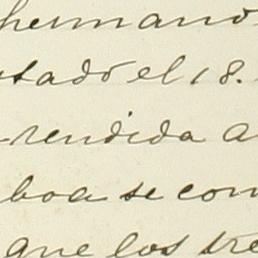 hermano
tado el 18.
rendida a
boa se com
que los tre